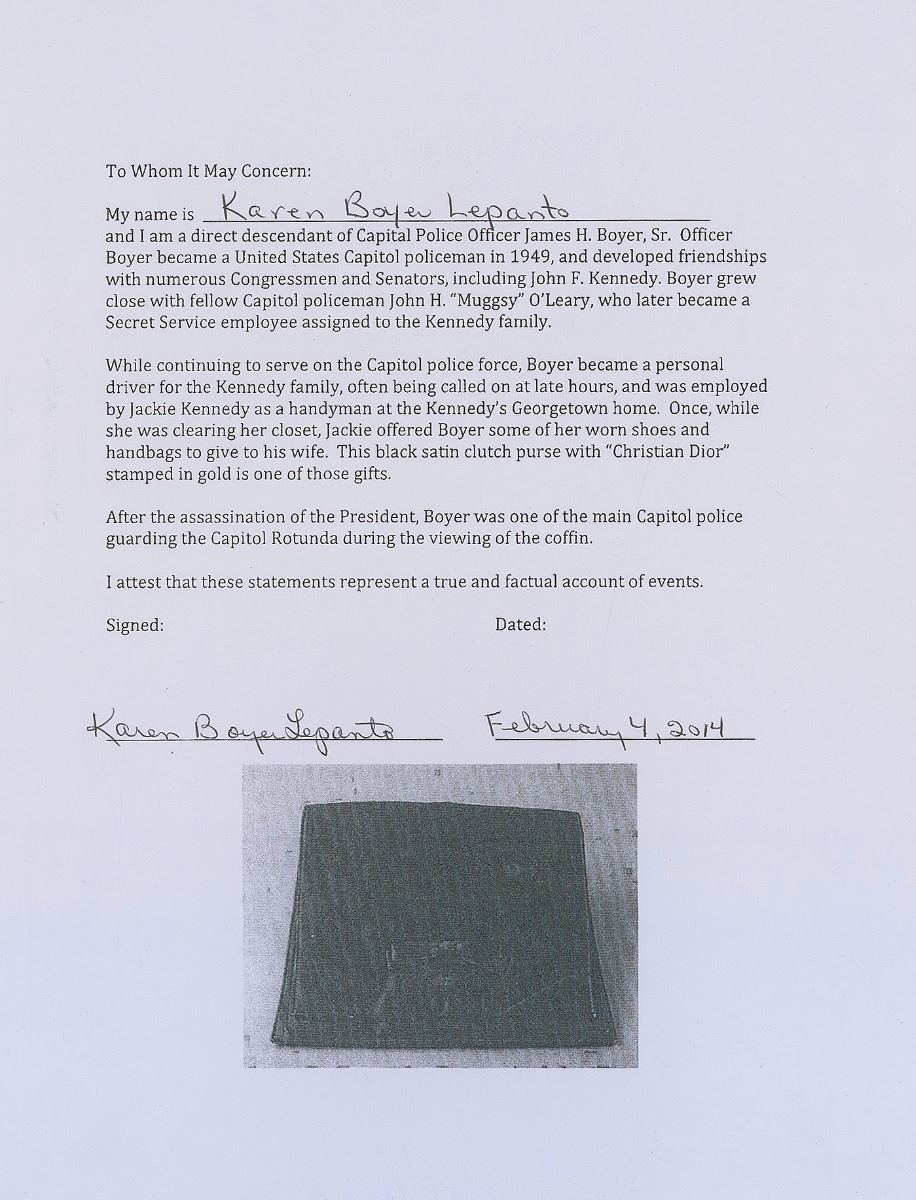 To Whom It May Concern:
My name is Karen Boyer Lepanto
and I am a direct descendant of Capital Police Officer James H. Boyer, Sr. Officer
Boyer became a United States Capitol policeman in 1949, and developed friendships
with numerous Congressmen and Senators, including John F. Kennedy. Boyer grew
close with fellow Capitol policeman John H. “Muggsy” O’Leary, who later became a
Secret Service employee assigned to the Kennedy family.
While continuing to serve on the Capitol police force, Boyer became a personal
driver for the Kennedy family, often being called on at late hours, and was employed
by Jackie Kennedy as a handyman at the Kennedy’s Georgetown home. Once, while
she was clearing her closet, Jackie offered Boyer some of her worn shoes and
handbags to give to his wife. This black satin clutch purse with “Christian Dior”
stamped in gold is one of those gifts.
After the assassination of the President, Boyer was one of the main Capitol police
guarding the Capitol Rotunda during the viewing of the coffin.
I attest that these statements represent a true and factual account of events.
Signed: Dated:
Karen Boyer Lepanto February 4, 2014